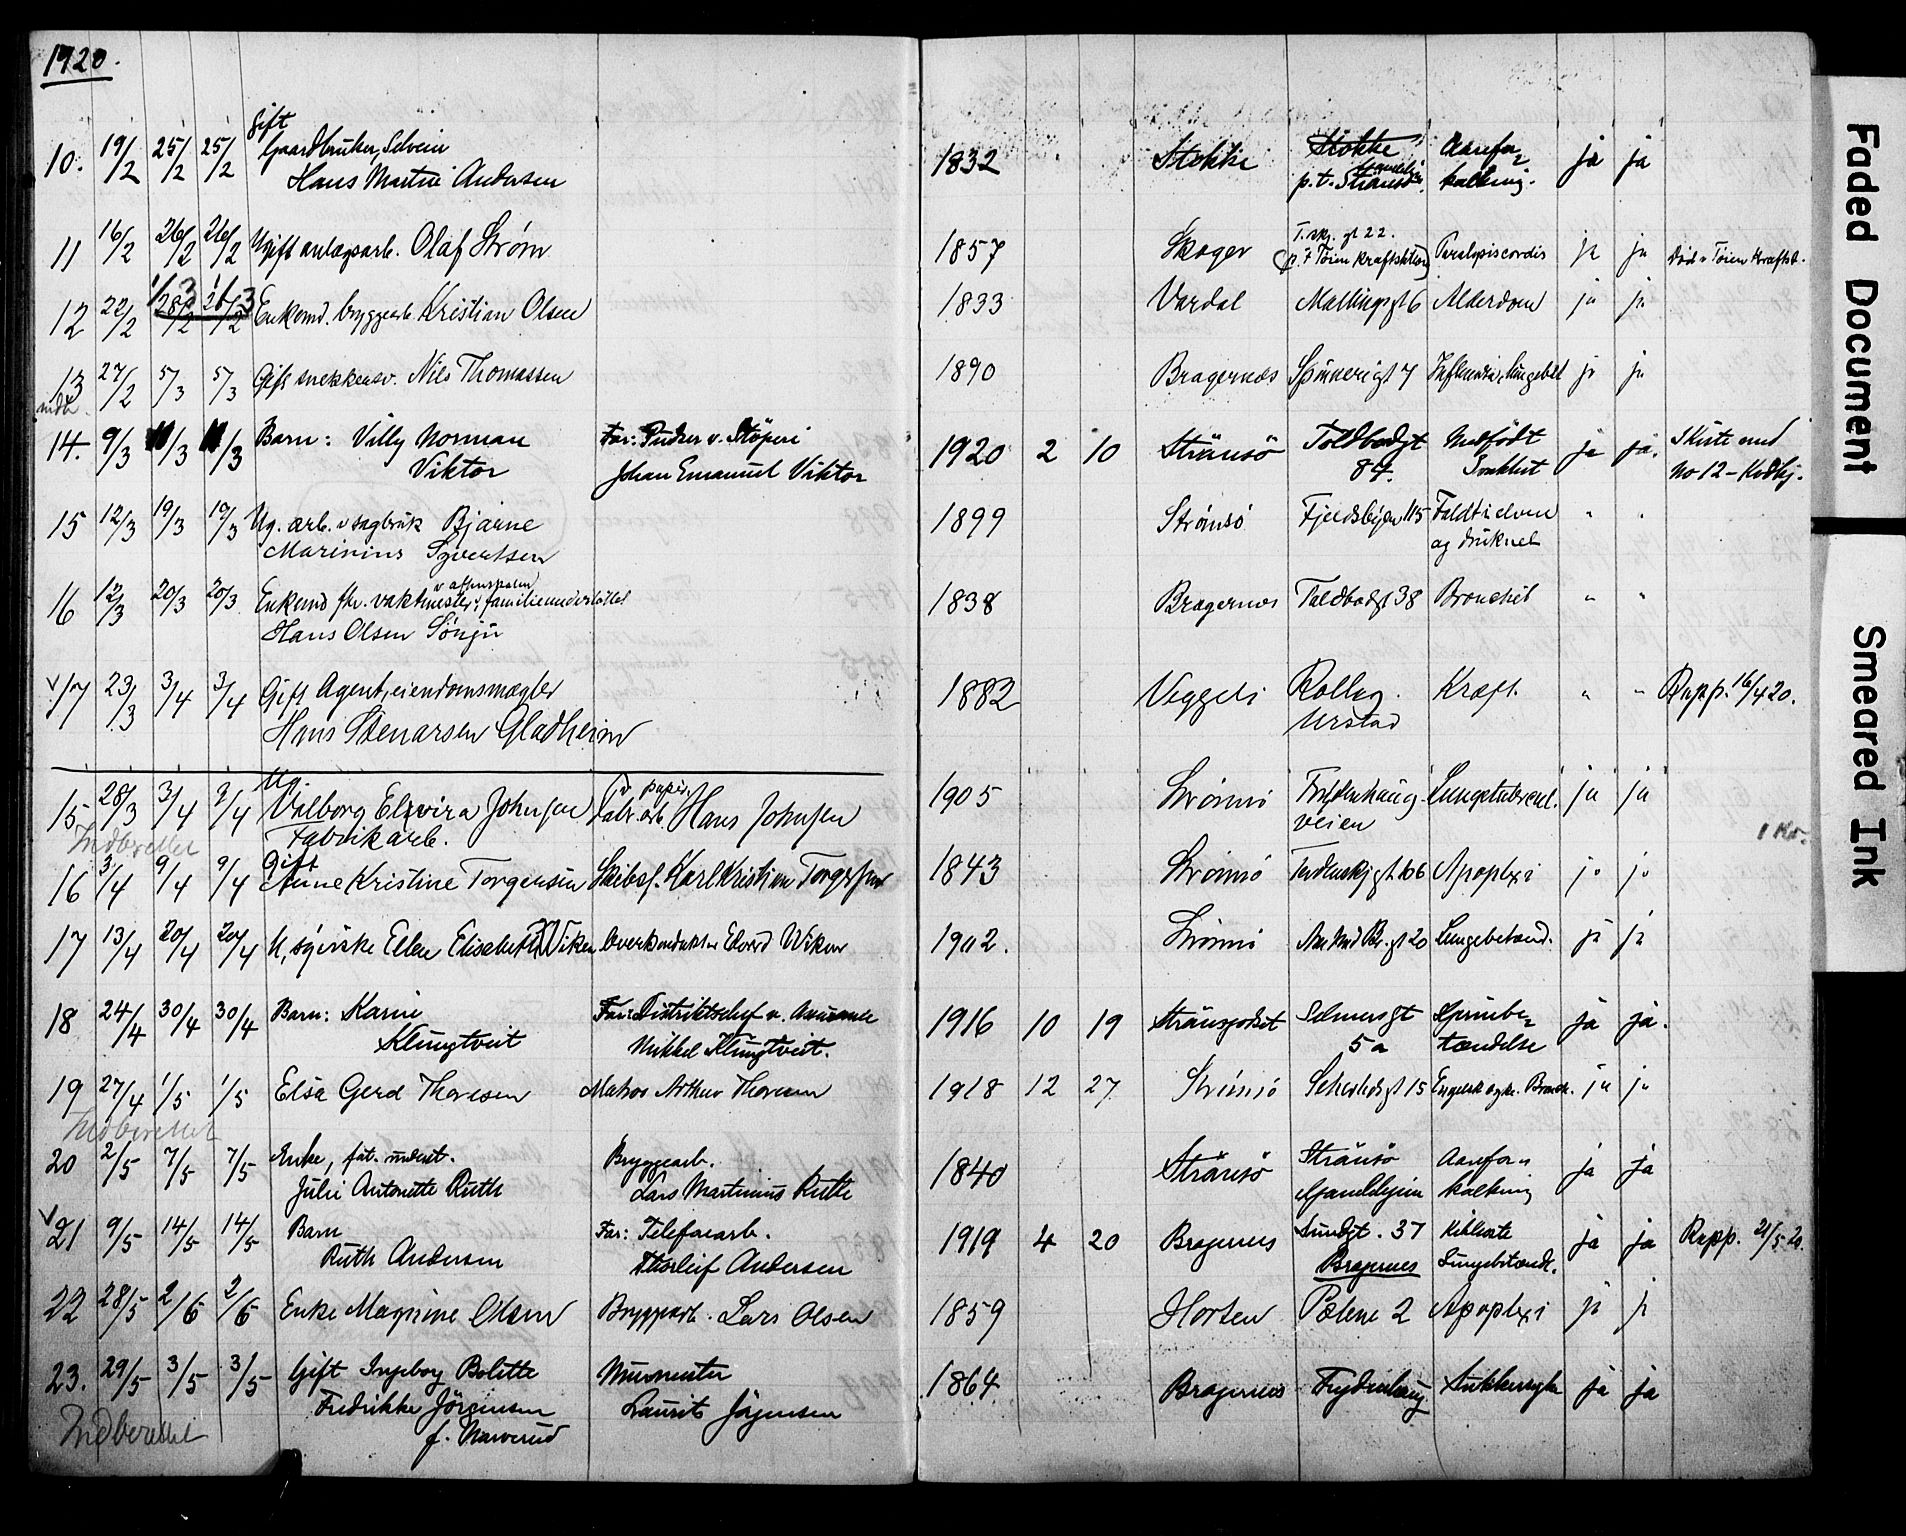 1920.
10. 19/2 25/2 25/2 Gift Gaardbruker, Selveier 1832 Stokke Stokke Aarefor= ja ja
Hans Martin Andersen p.t. Strømsø kalkning.
11 16/2 26/2 26/2 Ugift anlægsarb. Olaf Strøm 1857 Skoger T.skj. gt 22. Paralysis cordis ja ja Død v Tøien Kraftst.
12 22/2 28/2 26/2 1/3 1/3 Enkemd. bryggearb Kristian Olsen 1833 Vardal Mallingsgt 6 Alderdom ja ja
13 27/2 5/3 5/3 Gift snekkersv. Nils Thomassen 1890 Bragernes Spinnerigt 7 Influensa, Lungebet ja ja
indb.
14. 9/3 11/3 11/3 Barn: Villy Norman Far: Pudser v. Støperi 1920 2 10 Strømsø Toldbodgt Medfødt ja ja. Kiste med
Viktor Johan Emanuel Viktor 84. Svakhet No 12 -
15 12/3 19/3 19/3 Ug. arb. v sagbruk Bjarne 1899 Strømsø Fjeldsbyen 115 Faldt i elven " "
Marinius Syvertsen og druknet
16 12/3 20/3 20/3 Enkemd fhv. vaktmester familieunderstøttet 1838 Bragernes Toldbodgt 38 Bronchit " "
Hans Olsen Sønju
17 23/3 3/4 3/4 Gift Agent, eiendomsmægler 1882 Veggeli Rollag. Kræft. " " Rapp. 16/4 20.
Hans Stenarsen Gladheim
15 28/3 3/4 3/4 Ug. Valborg Elvira Johnsen Fabr. arb. v papir. Hans Johnsen 1905 Strømsø Frydenhaug- Lungetuberkul. ja ja
Indberettet Fabrikarb. veien 1 Kr.
16 3/4 9/4 9/4 Gift Anne Kristine Torgersen Skibsf. Karl Kristian Torgersen 1843 Strømsø Tordenskj gt 106 Apoplexi ja ja
17 13/4 20/4 20/4 U, søierske Ellen Elisabeth Wiken Overkonduktør Edvard Wiken 1902. Strømsø Lungebetænd. ja ja
18 24/4 30/4 30/4 Barn: Karin Far: Distriktschef v. 1916 10 19 Strømsgodset Selmersgt Hjernebe= ja ja.
Klungtveit Mikkel Klungtveit. 5a tændelse
19 27/4 1/5 1/5 Elsa Gerd Thoresen Matros Arthur Thoresen 1918 12 27 Strømsø Engelsk syke. Bronch. ja ja
Indberettet
20 2/5 7/5 7/5 Enke, fat. underst. Bryggearb. 1840 Strømsø Strømsø Aarefor= ja ja
Julie Antonette Ruth Lars Martinius Ruth Gamlehjem kalkning
21 9/5 14/5 14/5 Barn Far: Telefonarb. 1919 4 20 Bragernes Sundgt. 37 Kikhoste ja ja Rapp. 21/5 20.
Ruth Andersen Thorleif Andersen Bragernes Lungebetænd.
22 28/5 2/6 2/6 Enke Magnine Olsen Bryggearb. Lars Olsen 1859 Horten Pælene 2 Apoplexi ja ja
23. 29/5 3/5 3/5 Gift Ingeborg Bolette Murmester 1864 Bragernes Frydenhaug Sukkersyke ja ja
Fredrikke Jørgensen Laurits Jørgensen
Indberettet f. Narverud
Faded Document
Smeared Ink